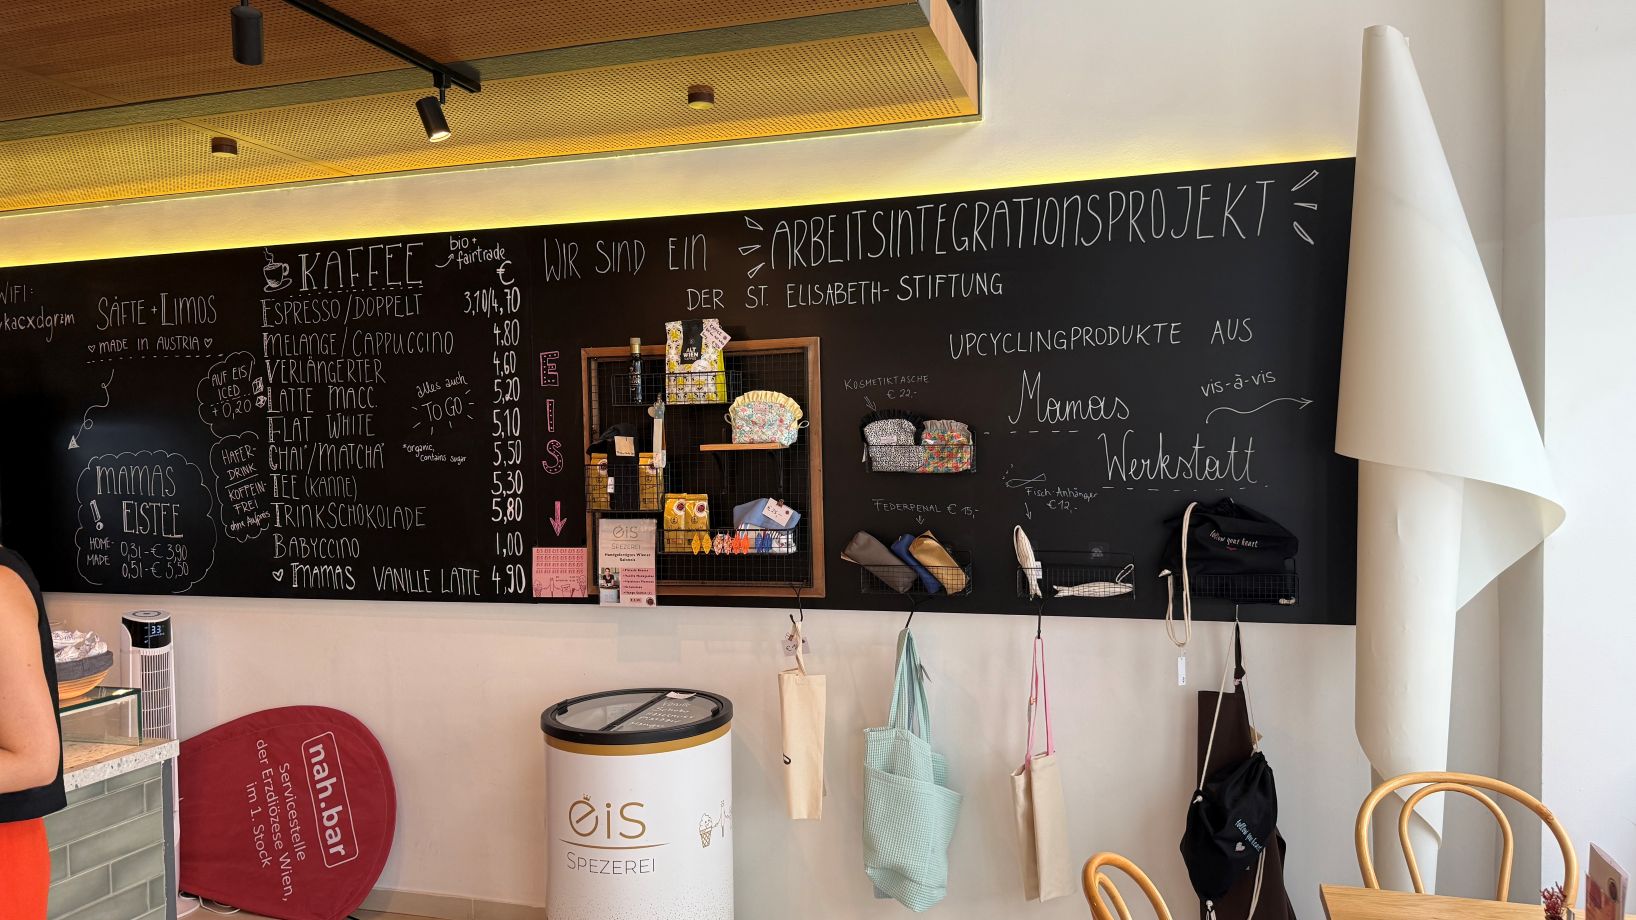 WIFI:
SÄFTE + LIMOS
♡ MADE IN AUSTRIA ♡
MAMAS
! EISTEE
HOME-
MADE
0,3l - € 3,90
0,5l - € 5,50
AUF EIS/
ICED
+0,20
HAFER-
DRINK
KOFFEIN-
FREI
ohne Aufpreis
KAFFEE
bio +
fairtrade
€
ESPRESSO/DOPPELT 3,10/4,70
MELANGE/CAPPUCCINO 4,80
VERLÄNGERTER 4,60
LATTE MACC. 5,20
FLAT WHITE 5,10
CHAI*/MATCHA* 5,50
TEE (KANNE) 5,30
TRINKSCHOKOLADE 5,80
BABYCCINO 1,00
♡ MAMAS VANILLE LATTE 4,90
alles auch
TO GO
*organic,
contains sugar
WIR SIND EIN ARBEITSINTEGRATIONSPROJEKT
DER ST. ELISABETH-STIFTUNG
EIS
UPCYCLINGPRODUKTE AUS
Mamas
Werkstatt
vis-à-vis
KOSMETIKTASCHE
€ 22,-
FEDERPENAL € 15,-
Fisch-Anhänger
€ 12,-
ALT
WIEN
follow your heart
eis
SPEZEREI
33
nah.bar
Servicestelle
der Erzdiözese Wien,
im 1. Stock
eis
SPEZEREI
follow your heart